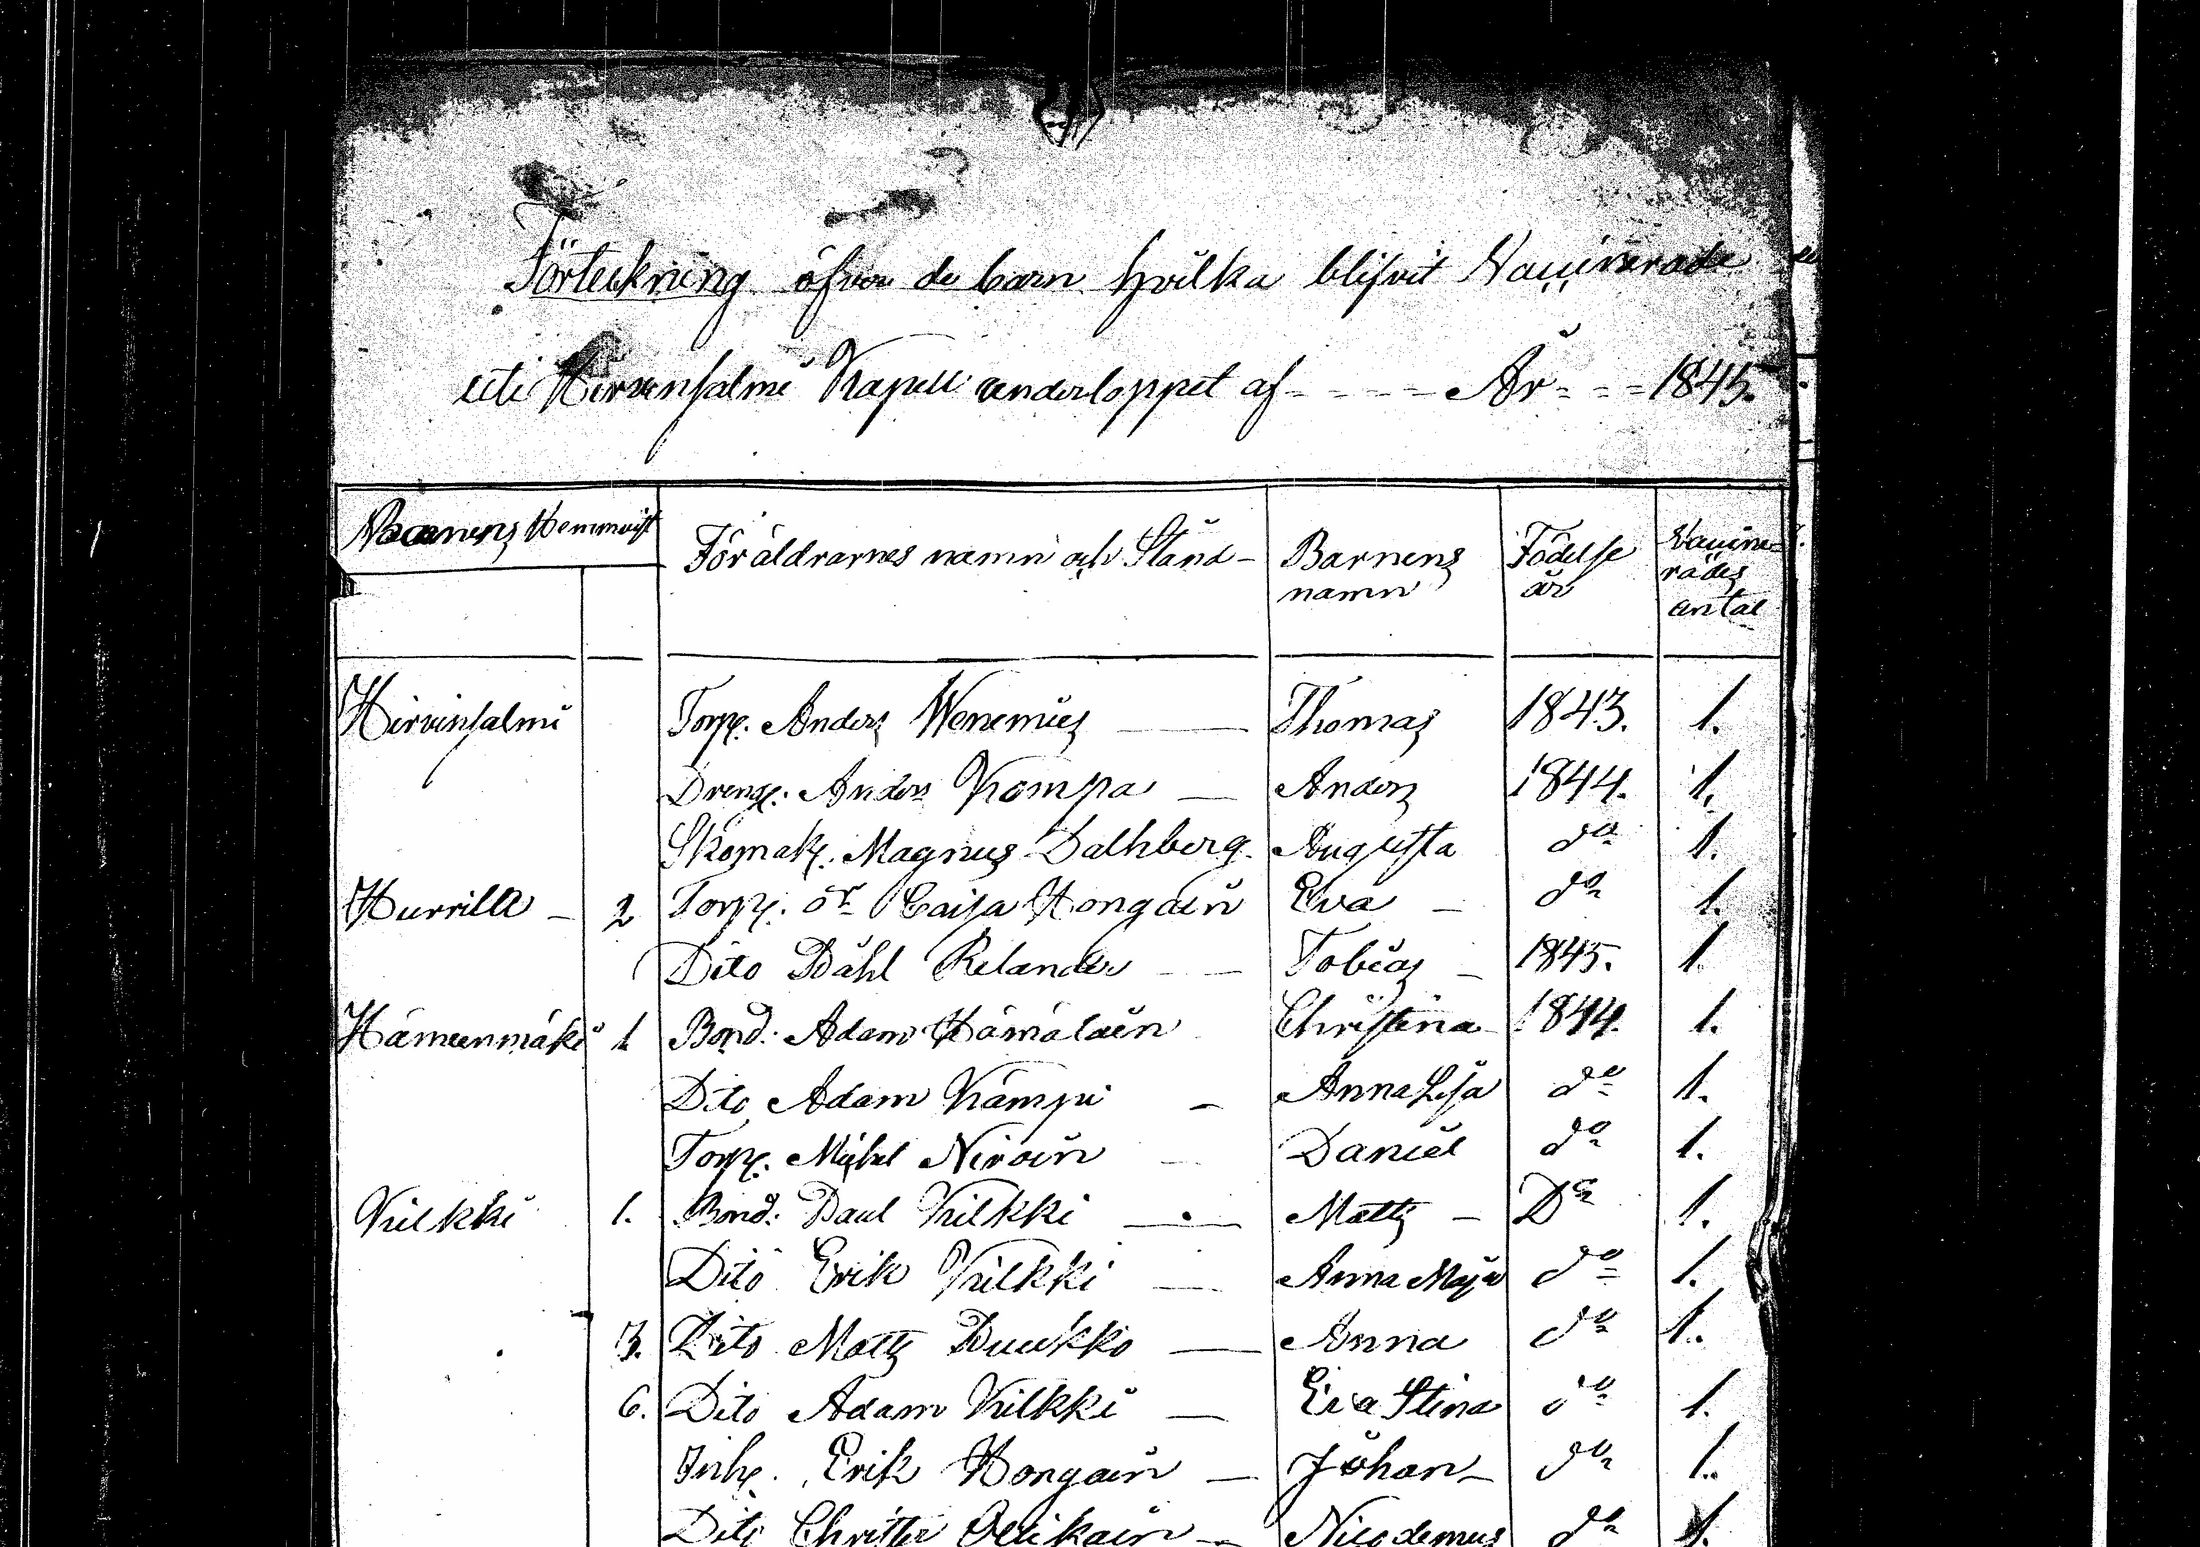 Förteckning öfver de barn hvilka blifvit Vaccinerade
uti Hirvensalmi Kapell underloppet af - - - - År - - - 1845.
Barnens Hemmvist
Föräldrarnes namn och Stånd -
Barnens namn
Födelse år
Vaccine-
rades
antal
Hirvensalmi Torp. Anders Wenemies — Thomas 1843. 1.
Dreng. Anders Kompa — Anders 1844. 1.
Skomak. Magnus Dalhberg. Augusta do 1.
Hurrilla - 2 Torp. Caisa Hongain Eva - do 1.
Dito Påhl Relander - - Tobias - 1845. 1.
Hämeenmäki 1 Bond. Adam Hämäläin Christina 1844. 1.
Dito Adam Kämpi - Anna Lisa do 1.
Torp. Michel Niroin - Daniel do 1.
Kilkki 1. Bond. Paul Kilkki — Matts - Do 1.
Dito Erik Kilkki — Anna Maja do 1.
3. Dito Matts Puukko — Anna do 1.
6. Dito Adam Kilkki — Eva Stina do 1.
Inh. Erik Hongain — Johan - do 1.
Dito Christer - Nicodemus do 1.